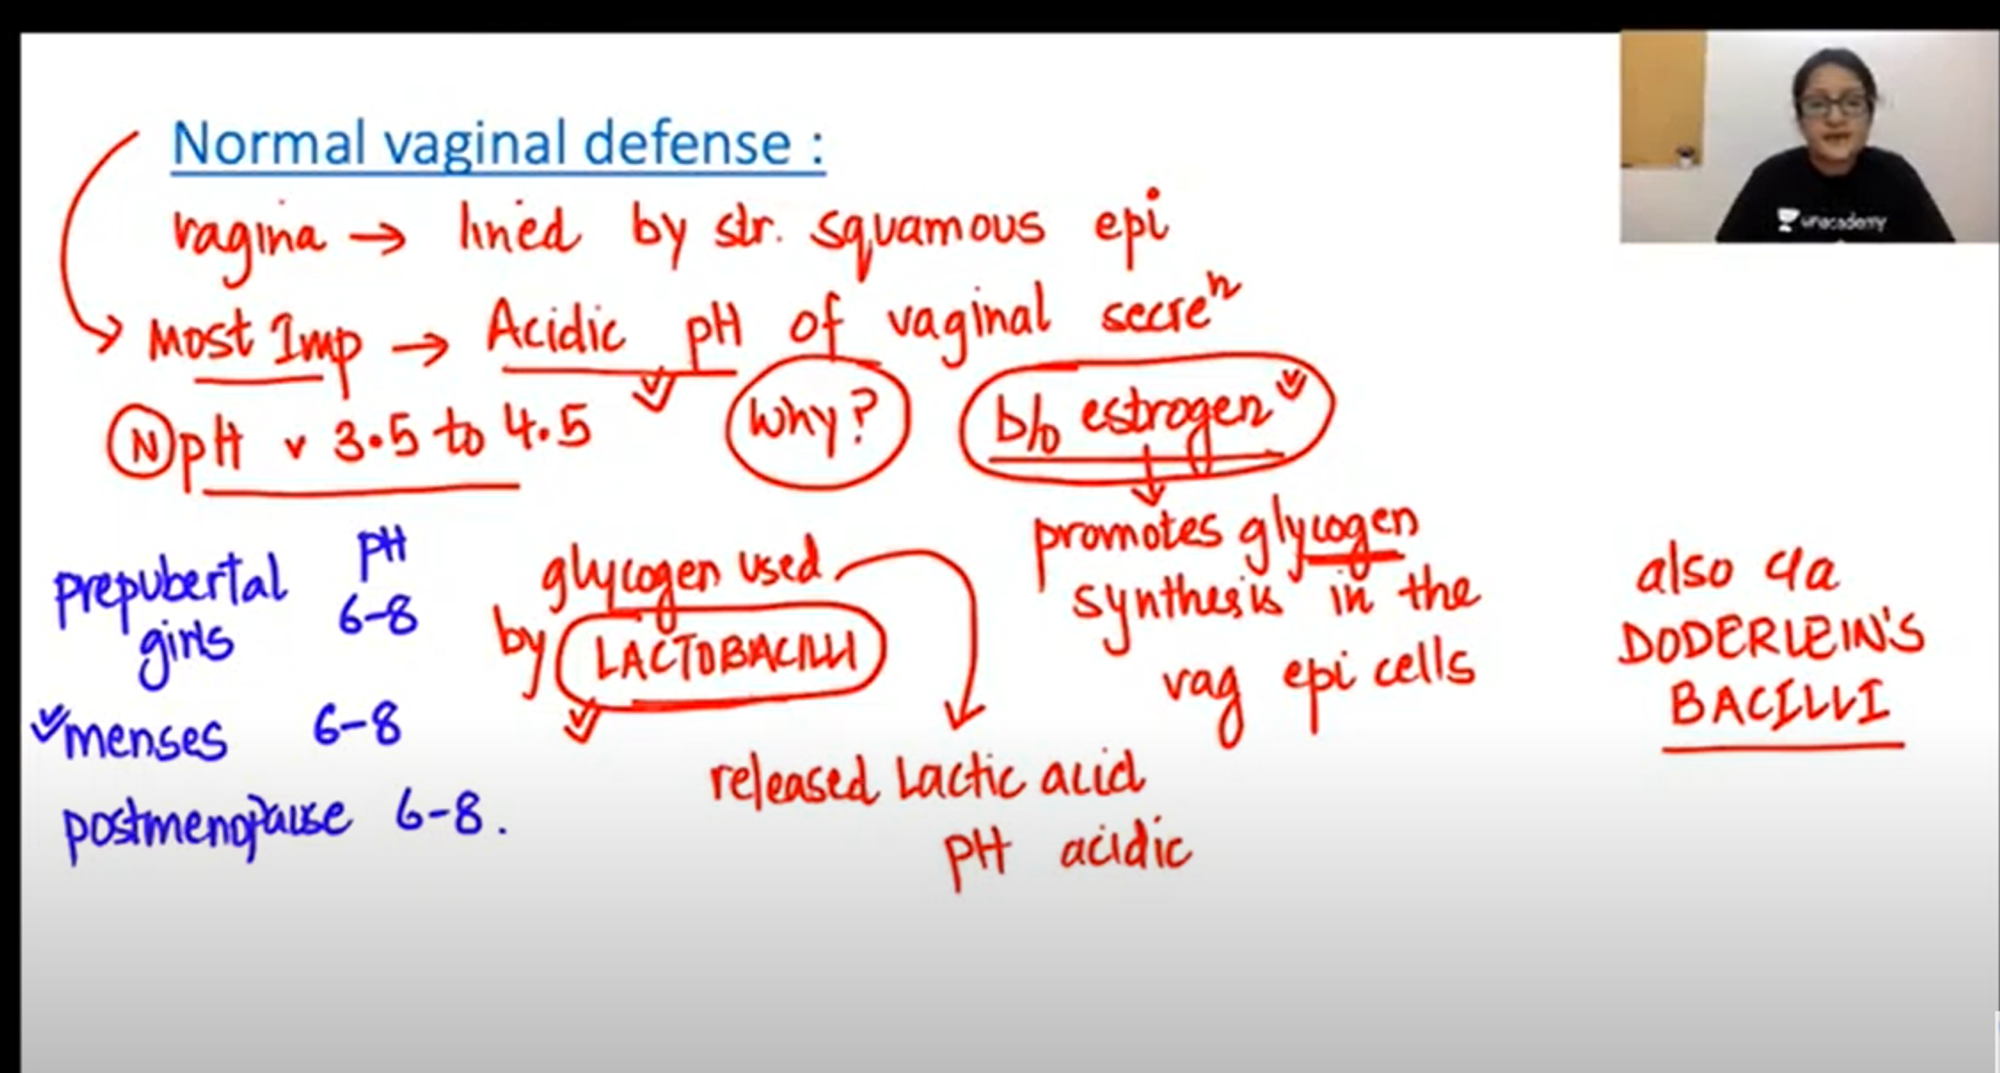 Normal vaginal defense :
vagina → lined by str. squamous epi
Most Imp → Acidic pH of vaginal secreⁿ
(N) pH 3.5 to 4.5
Why?
b/o estrogen
promotes glycogen
synthesis in the
vag epi cells
glycogen used
by LACTOBACILLI
released Lactic acid
pH acidic
also c/a
DODERLEIN'S
BACILLI
pH
prepubertal 6-8
girls
menses 6-8
postmenopause 6-8.
unacademy